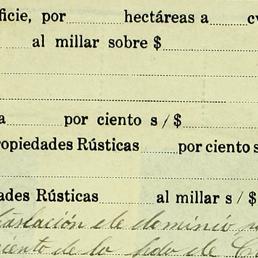 ficie, por hectáreas a
al millar sobre $
a por ciento s/$
ropiedades Rústicas por ciento s
ades Rústicas al millar s/$
traslación de dominio
de